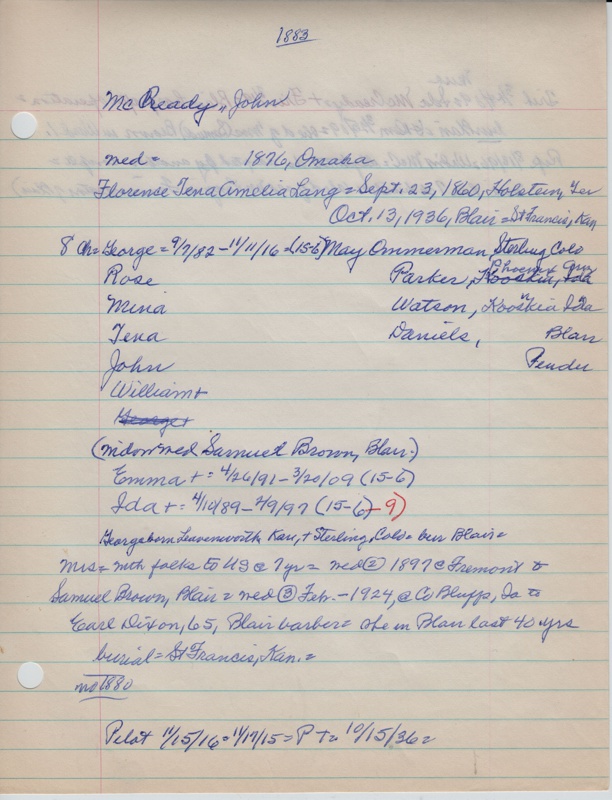 1883
McCready, John
med = 1876, Omaha
Florence Tena Amelia Lang = Sept. 23, 1860, Holstein, Ger
Oct. 13, 1936, Blair = St Francis, Kan
8 Ch = George = 9/7/82 - 11/11/16 = (15-6) May Ommerman Sterling Colo
Rose Parker, Kooskia, Ida Phoenix Ariz
Mina Watson, Kooskia Ida
Tena Daniels, Blair
John Pender
William +
George +
(Widow med Samuel Brown, Blair)
Emma + = 4/26/91 - 3/20/09 (15-6)
Ida + = 4/10/89 - 2/9/97 (15-6 - 9)
George born Leavenworth Kan, + Sterling, Colo = bur Blair =
Mrs = with folks to US @ 7 yr = med ② 1897 @ Fremont to
Samuel Brown, Blair = med ③ Feb. - 1924, @ C Bluffs, Ia to
Earl Dixon, 65, Blair barber = she in Blair last 40 yrs
burial = St Francis, Kan. =
no 1880
Pilot 11/15/16 = 11/17/15 = P T = 10/15/36 =